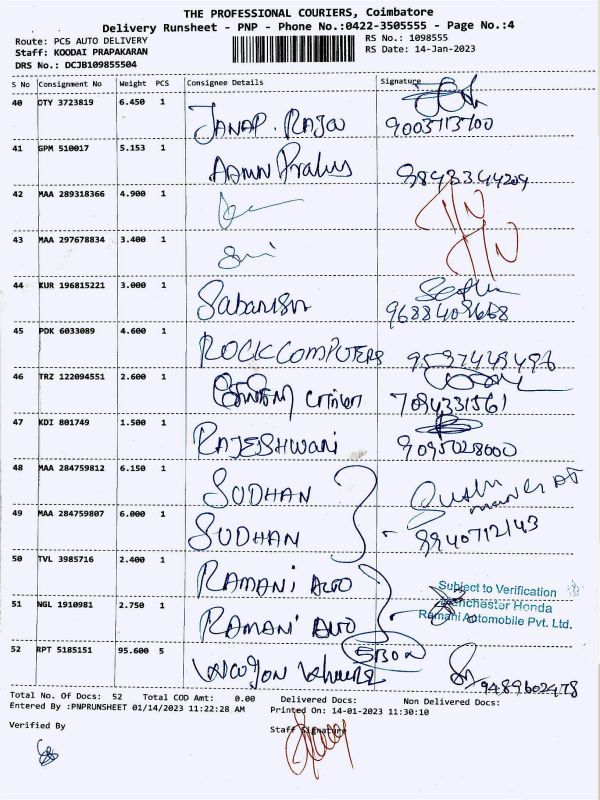 THE PROFESSIONAL COURIERS, Coimbatore
Delivery Runsheet - PNP - Phone No.:0422-3505555 - Page No.:4
Route: PCS AUTO DELIVERY
RS No.: 1098555
Staff: KOODAI PRAPAKARAN
RS Date: 14-Jan-2023
DRS No.: DCJB109855504
S No Consignment No Weight PCS Consignee Details Signature
40 OTY 3723819 6.450 1 JANAP. RAJOO
41 GPM 510017 5.153 1
42 MAA 289318366 4.900 1
43 MAA 297678834 3.400 1
44 KUR 196815221 3.000 1 Sabarish
45 PDK 6033089 4.600 1 ROCK COMPUTERS
46 TRZ 122094551 2.600 1 7094331561
47 KDI 801749 1.500 1 RAJESHWARI 9095028000
48 MAA 284759812 6.150 1 SUDHAN
49 MAA 284759807 6.000 1 SUDHAN 9940712143
50 TVL 3985716 2.400 1 RAMANI AUTO
51 NGL 1910981 2.750 1 RAMANI AUTO
Subject to Verification
Manchester Honda
Ramani Automobile Pvt. Ltd.
52 RPT 5185151 95.600 5
Total No. Of Docs: 52 Total COD Amt: 0.00 Delivered Docs: Non Delivered Docs:
Entered By :PNPRUNSHEET 01/14/2023 11:22:28 AM Printed On: 14-01-2023 11:30:10
Verified By Staff Signature